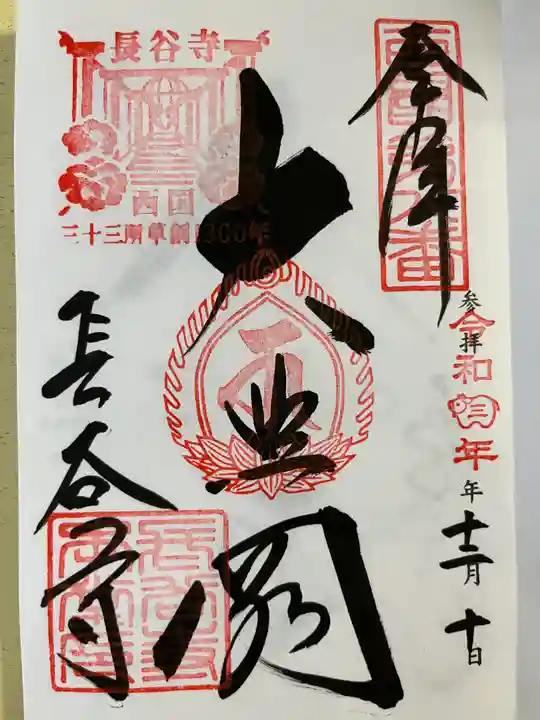 奉拝
西国第八番
参拝
令和三年
年十二月十日
大悲閣
長谷寺
西国
三十三所草創1300年
長谷寺